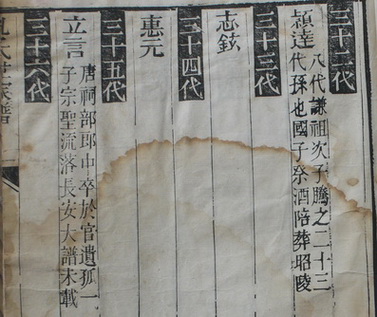 三十二代
頴達
八代謙祖次子騰之二十三
代孫也國子祭酒陪葬昭陵
三十三代
志鉉
三十四代
惠元
三十五代
立言
唐祠部郎中卒於官遺孤一
子宗聖流落長安大譜未載
三十六代